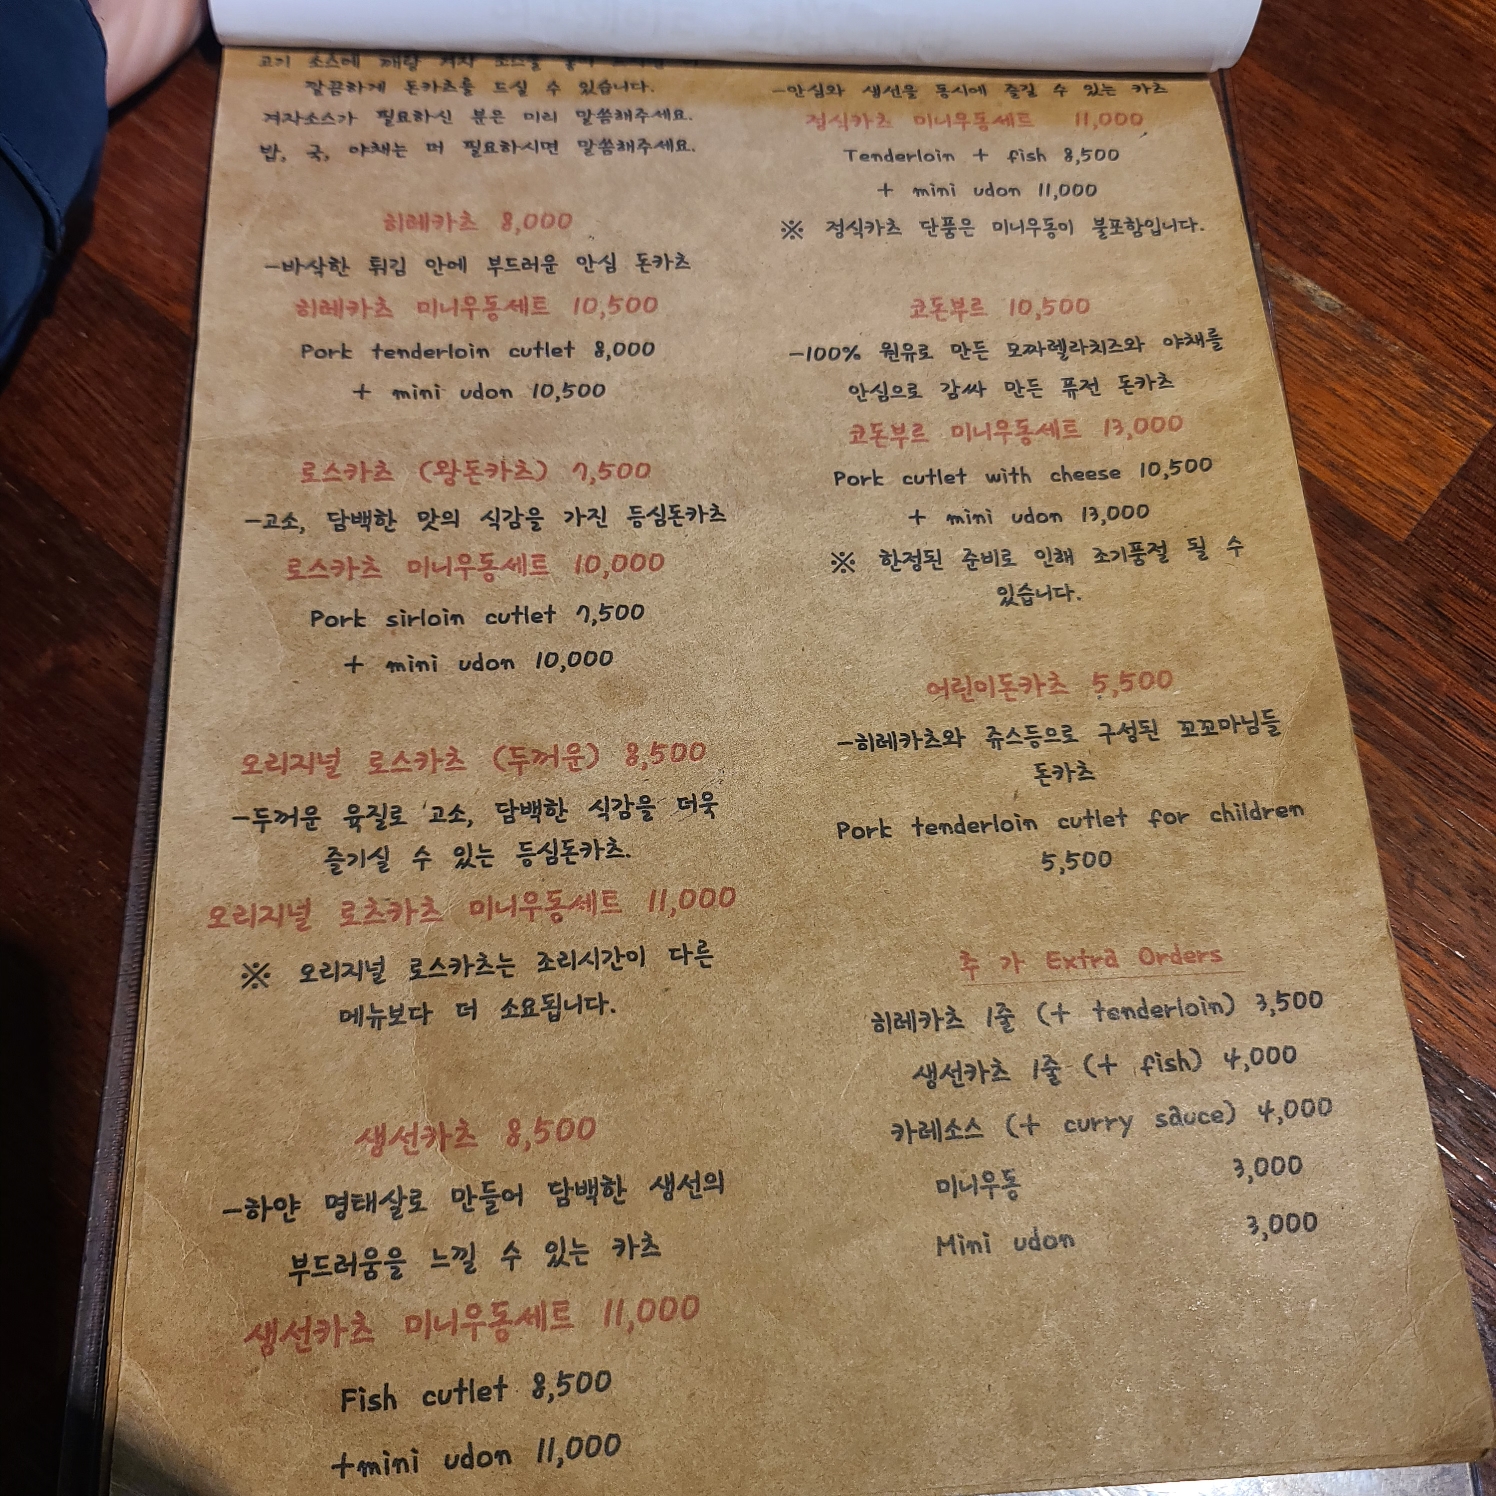 고기 소스에
깔끔하게 돈카츠를 드실 수 있습니다.
겨자소스가 필요하신 분은 미리 말씀해주세요.
밥, 국, 야채는 더 필요하시면 말씀해주세요.
히레카츠 8,000
-바삭한 튀김 안에 부드러운 안심 돈카츠
히레카츠 미니우동세트 10,500
Pork tenderloin cutlet 8,000
+ mini udon 10,500
로스카츠 (왕돈카츠) 7,500
-고소, 담백한 맛의 식감을 가진 등심돈카츠
로스카츠 미니우동세트 10,000
Pork sirloin cutlet 7,500
+ mini udon 10,000
오리지널 로스카츠 (두꺼운) 8,500
-두꺼운 육질로 고소, 담백한 식감을 더욱
즐기실 수 있는 등심돈카츠.
오리지널 로츠카츠 미니우동세트 11,000
※ 오리지널 로스카츠는 조리시간이 다른
메뉴보다 더 소요됩니다.
생선카츠 8,500
-하얀 명태살로 만들어 담백한 생선의
부드러움을 느낄 수 있는 카츠
생선카츠 미니우동세트 11,000
Fish cutlet 8,500
+mini udon 11,000
-안심와 생선을 동시에 즐길 수 있는 카츠
정식카츠 미니우동세트 11,000
Tenderloin + fish 8,500
+ mini udon 11,000
※ 정식카츠 단품은 미니우동이 불포함입니다.
코돈부르 10,500
-100% 원유로 만든 모짜렐라치즈와 야채를
안심으로 감싸 만든 퓨전 돈카츠
코돈부르 미니우동세트 13,000
Pork cutlet with cheese 10,500
+ mini udon 13,000
※ 한정된 준비로 인해 조기품절 될 수
있습니다.
어린이돈카츠 5,500
-히레카츠와 쥬스등으로 구성된 꼬꼬마님들
돈카츠
Pork tenderloin cutlet for children
5,500
추 가 Extra Orders
히레카츠 1줄 (+ tenderloin) 3,500
생선카츠 1줄 (+ fish) 4,000
카레소스 (+ curry sauce) 4,000
미니우동 3,000
Mini udon 3,000